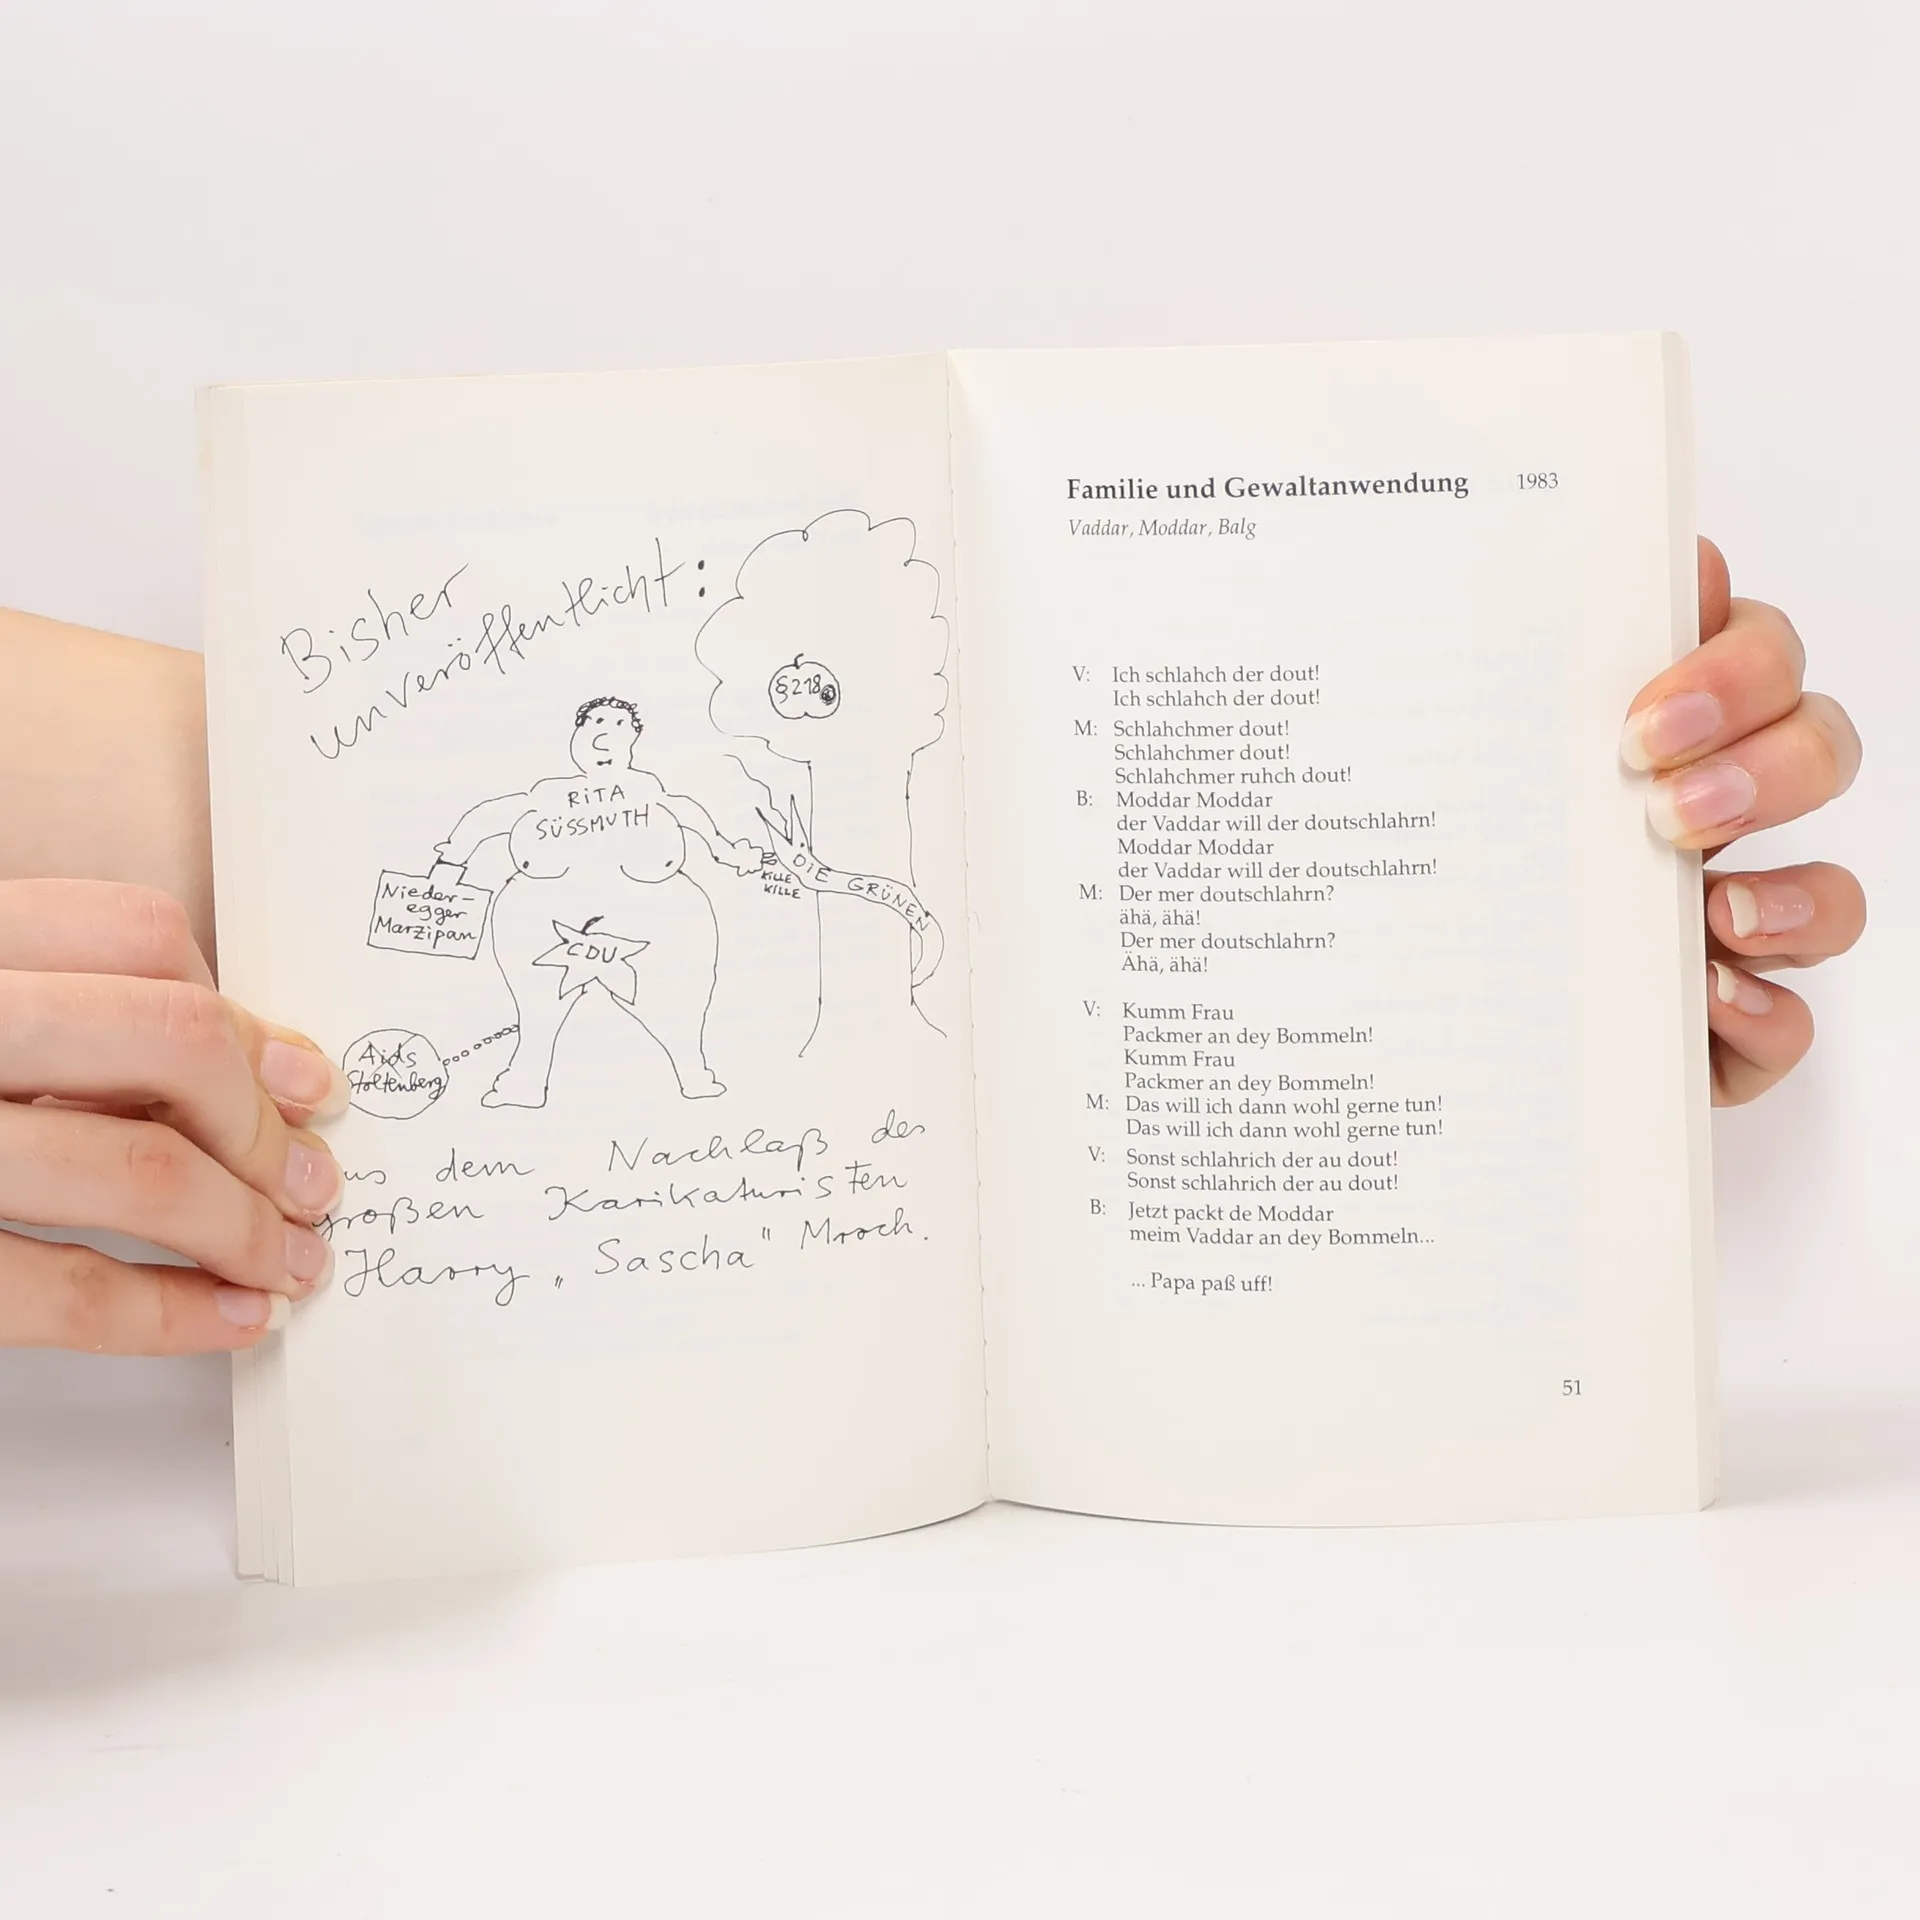 Bisher
unveröffentlicht:
§218
RiTA
SÜSSMUTH
KiLLE
KiLLE
DiE GRÜNEN
Nieder-
egger
Marzipan
CDU
Aids
Stoltenberg
us dem Nachlaß des
großen Karikaturisten
Harry „Sascha" Mroch.
Familie und Gewaltanwendung 1983
Vaddar, Moddar, Balg
V: Ich schlahch der dout!
Ich schlahch der dout!
M: Schlahchmer dout!
Schlahchmer dout!
Schlahchmer ruhch dout!
B: Moddar Moddar
der Vaddar will der doutschlahrn!
Moddar Moddar
der Vaddar will der doutschlahrn!
M: Der mer doutschlahrn?
ähä, ähä!
Der mer doutschlahrn?
Ähä, ähä!
V: Kumm Frau
Packmer an dey Bommeln!
Kumm Frau
Packmer an dey Bommeln!
M: Das will ich dann wohl gerne tun!
Das will ich dann wohl gerne tun!
V: Sonst schlahrich der au dout!
Sonst schlahrich der au dout!
B: Jetzt packt de Moddar
meim Vaddar an dey Bommeln...
... Papa paß uff!
51